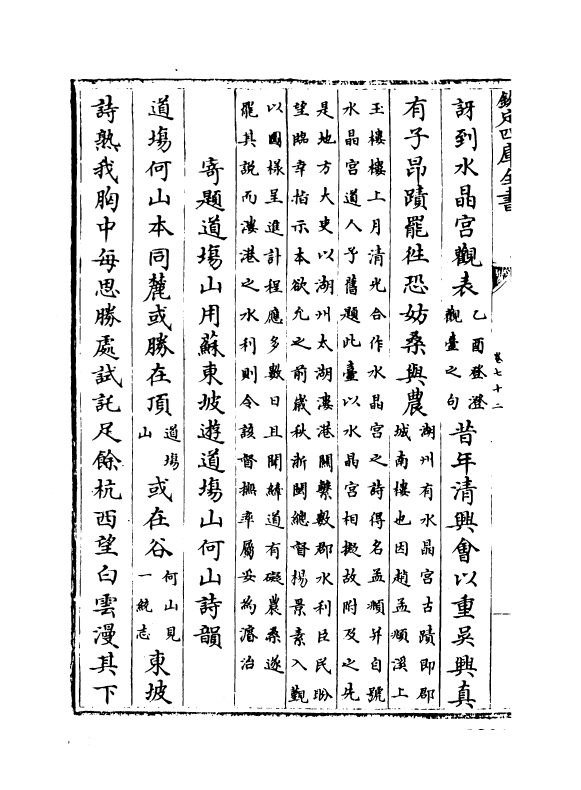 欽定四庫全書
卷七十二
訝到水晶宮觀表
乙酉登澄
觀臺之句
昔年清興會以重吳興真
有子昂蹟罷徃恐妨桑與農
湖州有水晶宮古蹟即郡
城南樓也因趙孟頫溪上
玉樓樓上月清光合作水晶宮之詩得名孟頫并自號
水晶宮道人予舊題此臺以水晶宮相擬故附及之先
是地方大吏以湖州太湖漊港關繫數郡水利臣民盼
望臨幸指示本欲允之前歲秋浙閩總督楊景素入覲
以圖様呈進計程應多數日且開緯道有礙農桑遂
罷其説而漊港之水利則令該督撫率屬妥為濬治
寄題道塲山用蘇東坡遊道塲山何山詩韻
道塲何山本同麓或勝在頂
道塲
山
或在谷
何山見
一統志
東坡
詩熟我胸中每思勝處試託足餘杭西望白雲漫其下